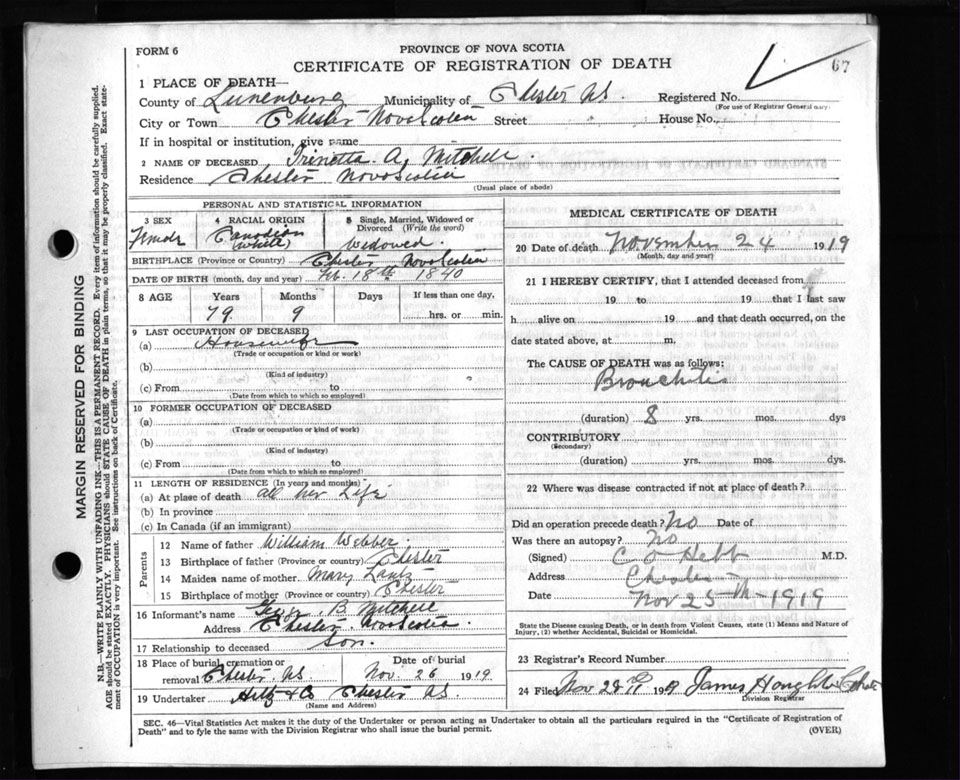 FORM 6
PROVINCE OF NOVA SCOTIA
CERTIFICATE OF REGISTRATION OF DEATH
67
1 PLACE OF DEATH—
County of Lunenburg Municipality of Chester N.S. Registered No.
(For use of Registrar General only)
City or Town Chester Nova Scotia Street House No.
If in hospital or institution, give name
2 NAME OF DECEASED Trinetta A. Mitchell.
Residence Chester Nova Scotia
(Usual place of abode)
PERSONAL AND STATISTICAL INFORMATION
3 SEX 4 RACIAL ORIGIN 5 Single, Married, Widowed or Divorced (Write the word)
Female Canadian (White) Widowed.
BIRTHPLACE (Province or Country) Chester Nova Scotia
DATE OF BIRTH (month, day and year) Feb. 18th 1840
8 AGE Years Months Days If less than one day,
79 9 hrs. or min.
9 LAST OCCUPATION OF DECEASED
(a) Housewife
(Trade or occupation or kind or work)
(b)
(Kind of industry)
(c) From to
(Date from which to which so employed)
10 FORMER OCCUPATION OF DECEASED
(a)
(Trade or occupation or kind of work)
(b)
(Kind of industry)
(c) From to
(Date from which to which so employed)
11 LENGTH OF RESIDENCE (In years and months)
(a) At place of death all her Life
(b) In province
(c) In Canada (if an immigrant)
Parents
12 Name of father William Webber.
13 Birthplace of father (Province or country) Chester
14 Maiden name of mother Mary
15 Birthplace of mother (Province or country) Chester
16 Informant's name B Mitchell
Address Chester. Nova Scotia.
17 Relationship to deceased Son.
18 Place of burial, cremation or removal Chester N.S. Date of burial Nov. 26 1919
19 Undertaker Hiltz & Co Chester N.S.
(Name and Address)
MEDICAL CERTIFICATE OF DEATH
20 Date of death November 24 1919
(Month, day and year)
21 I HEREBY CERTIFY, that I attended deceased from
19 to 19 that I last saw
h alive on 19 and that death occurred, on the
date stated above, at m.
The CAUSE OF DEATH was as follows:
Bronchitis
(duration) 8 yrs. mos. dys
CONTRIBUTORY
(Secondary)
(duration) yrs. mos. dys.
22 Where was disease contracted if not at place of death?
Did an operation precede death? No Date of
Was there an autopsy? No
(Signed) C O Hebb M.D.
Address Chester
Date Nov 25th - 1919
State the Disease causing Death, or in death from Violent Causes, state (1) Means and Nature of
Injury, (2) whether Accidental, Suicidal or Homicidal.
23 Registrar's Record Number
24 Filed Nov 19 James
Division Registrar
SEC. 46—Vital Statistics Act makes it the duty of the Undertaker or person acting as Undertaker to obtain all the particulars required in the "Certificate of Registration of
Death" and to fyle the same with the Division Registrar who shall issue the burial permit.
(OVER)
MARGIN RESERVED FOR BINDING
N.B.—WRITE PLAINLY WITH UNFADING INK—THIS IS A PERMANENT RECORD. Every item of information should be carefully supplied.
AGE should be stated EXACTLY. PHYSICIANS should STATE CAUSE OF DEATH in plain terms, so that it may be properly classified. Exact state-
ment of OCCUPATION is very important. See instructions on back of Certificate.